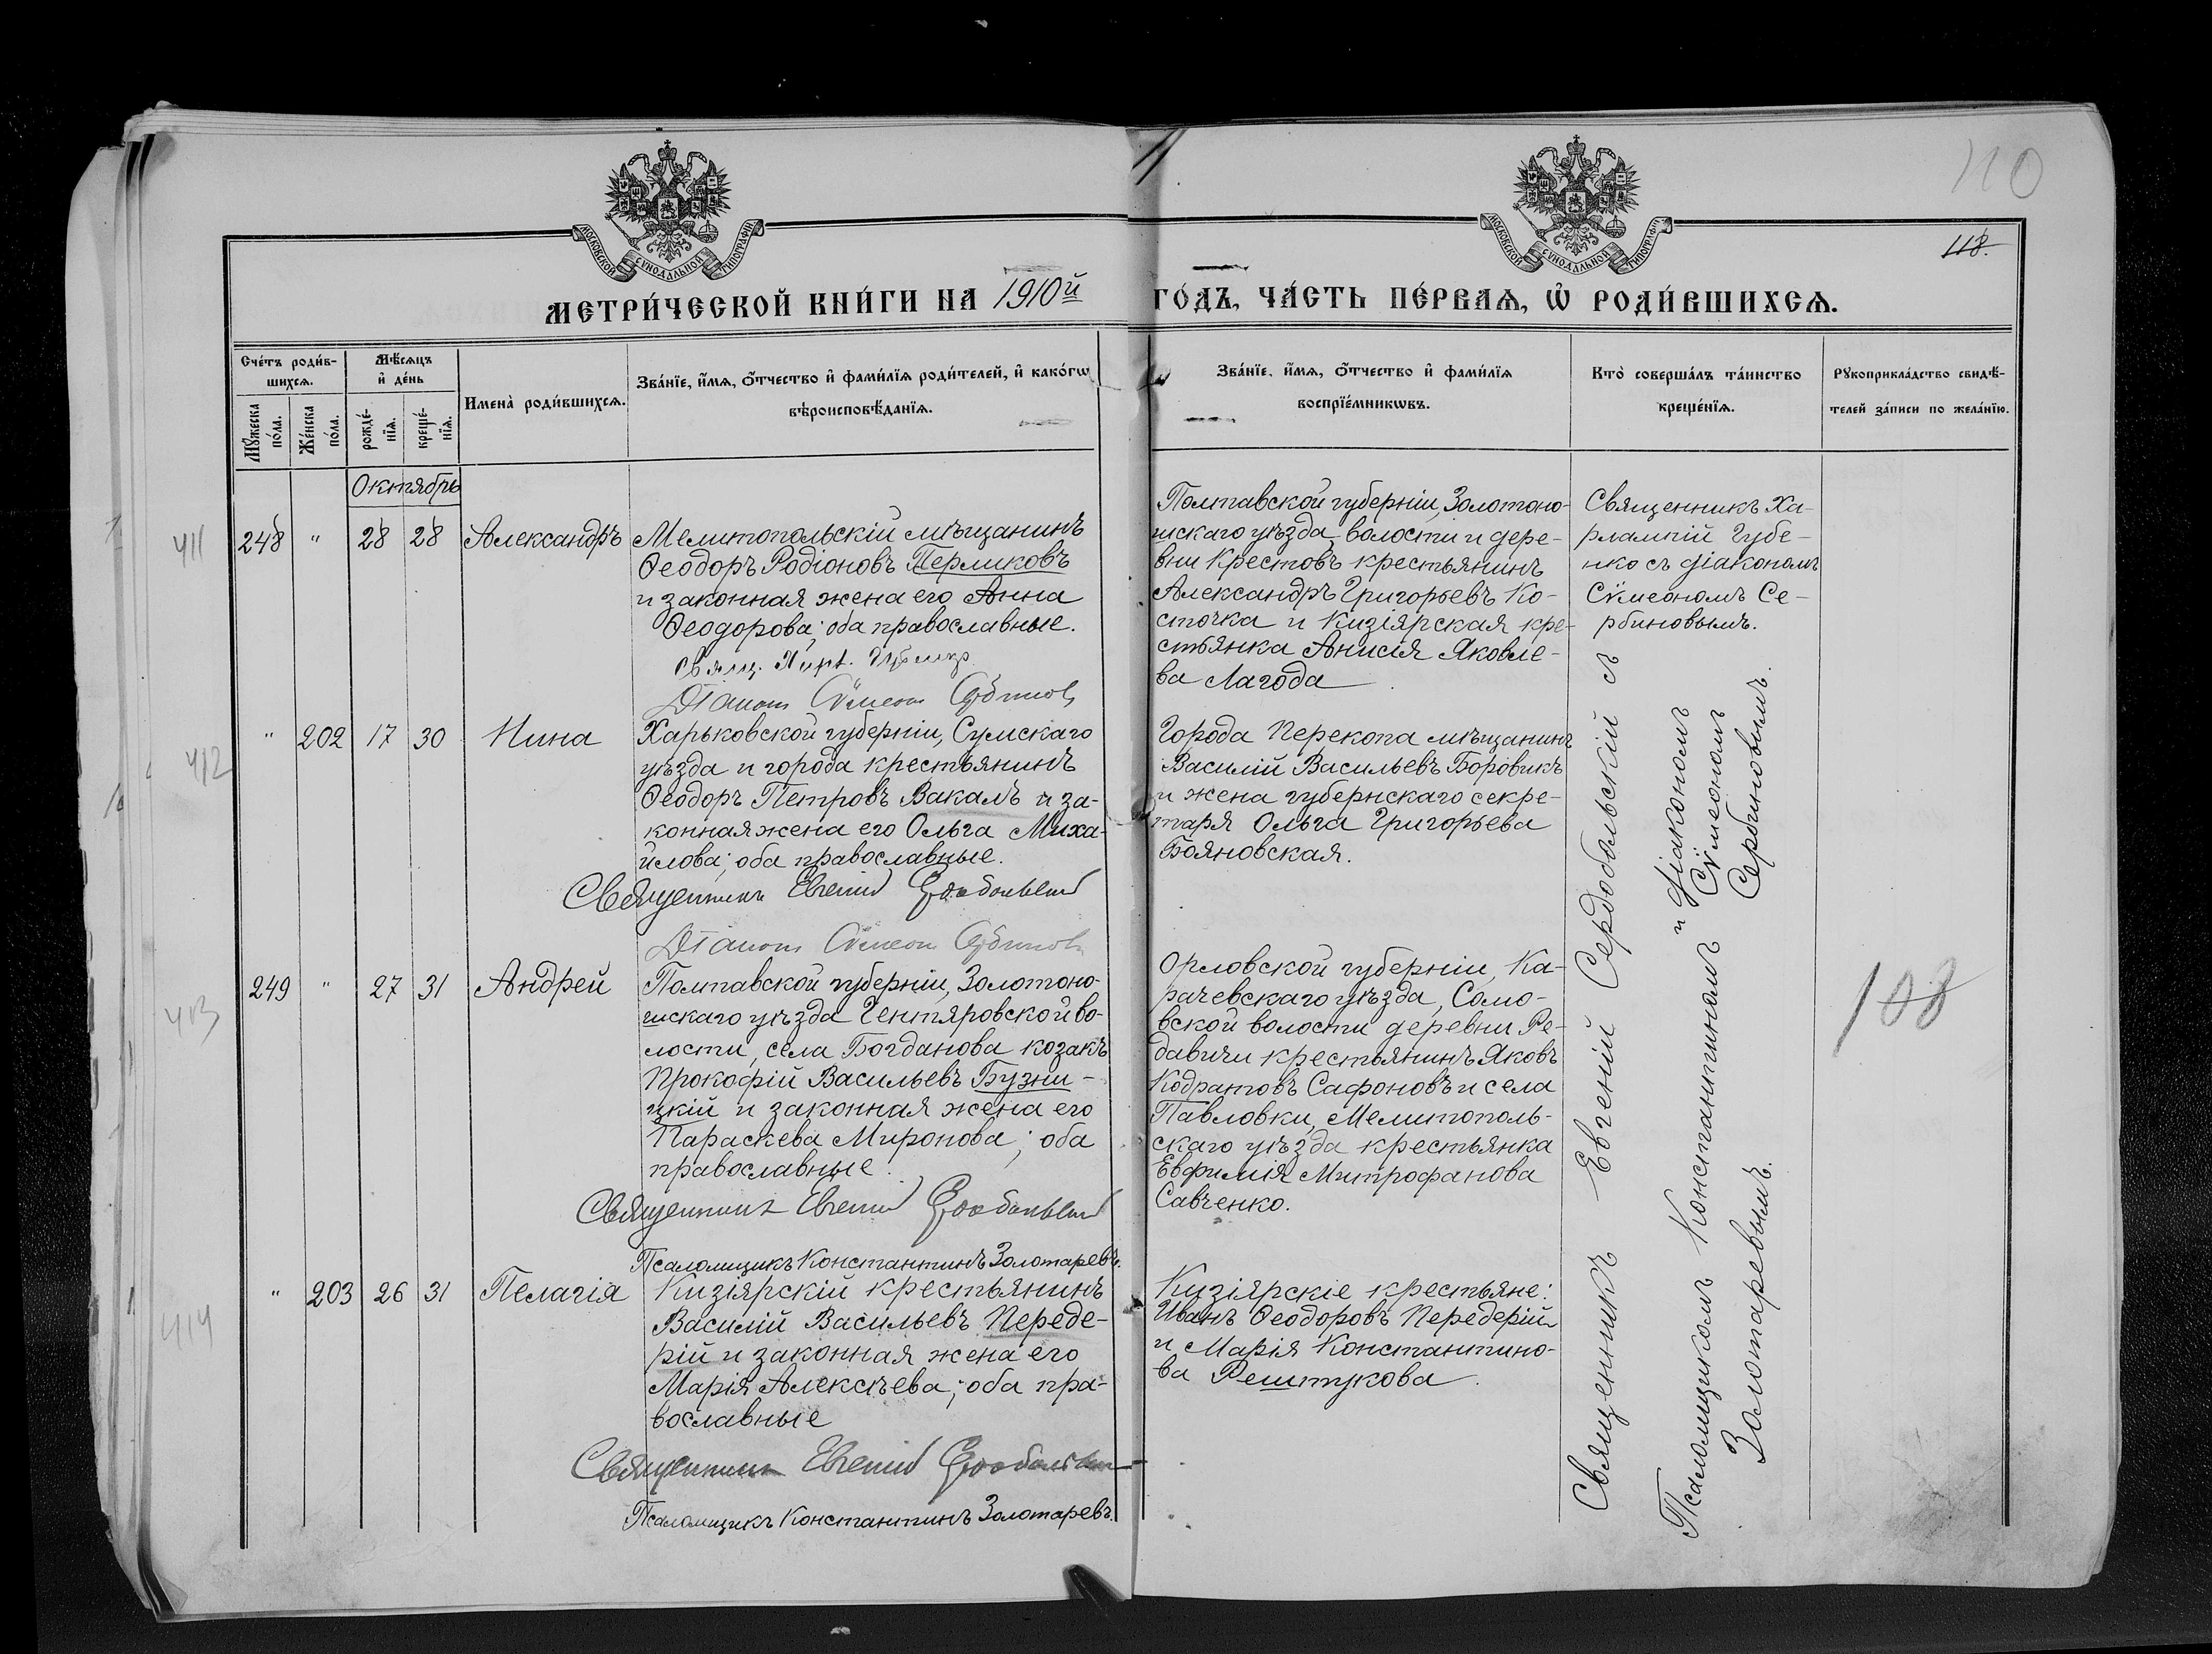 110
118.
МОСКОВСКОЙ СѴНОДАЛЬНОЙ ТИПОГРАФІИ
МОСКОВСКОЙ СѴНОДАЛЬНОЙ ТИПОГРАФІИ
МЕТРИ́ЧЕСКОЙ КНИ́ГИ НА 1910й ГО́ДЪ, ЧА́СТЬ ПЕ́РВАѦ, Ѡ҆ РОДИ́ВШИХСѦ.
Сче́тъ роди́в-
шихсѧ.
Мꙋ́жеска по́ла.
Же́нска по́ла.
Мѣ́сѧцъ
и҆ де́нь
рожде́-
нїѧ.
креще́-
нїѧ.
Имена̀ роди́вшихсѧ.
Зва́нїе, и҆́мѧ, ѻ҆́тчество и҆ фами́лїѧ роди́телей, и҆ како́гѡ
вѣроисповѣ́данїѧ.
Зва́нїе, и҆́мѧ, ѻ҆́тчество и҆ фами́лїѧ
воспрїе́мникѡвъ.
Кто̀ соверша́лъ та́инство
креще́нїѧ.
Рꙋкоприкла́дство свидѣ́-
телей за́писи по жела́нїю.
Октябрь
411
248 " 28 28 Александръ
Мелитопольскій мѣщанинъ
Ѳеодоръ Родіоновъ Перликовъ
и законная жена его Анна
Ѳеодорова; оба православные.
Свящ. Харл. Губенко
Діаконъ Сѵмеонъ Сербиновъ
Полтавской губерніи, Золотоно-
шскаго уѣзда, волости и дере-
вни Крестовъ крестьянинъ
Александръ Григорьевъ Ко-
сточка и Кизіярская кре-
стьянка Анисія Яковле-
ва Лагода
Священникъ Ха-
рлампій Губе-
нко съ діакономъ
Сѵмеономъ Се-
рбиновымъ.
412
" 202 17 30 Нина
Харьковской губерніи, Сумскаго
уѣзда и города крестьянинъ
Ѳеодоръ Петровъ Вакалъ и за-
конная жена его Ольга Миха-
йлова; оба православные.
Священникъ Евгеній Сердобольскій
Діаконъ Сѵмеонъ Сербиновъ
Города Перекопа мѣщанинъ
Василій Васильевъ Боровикъ
и жена губернскаго секре-
таря Ольга Григорьева
Бояновская.
413
249 " 27 31 Андрей
Полтавской губерніи, Золотоно-
шскаго уѣзда Гентяровской во-
лости, села Богданова козакъ
Прокофій Васильевъ Бузни-
цкій и законная жена его
Параскева Миронова; оба
православные.
Священникъ Евгеній Сердобольскій
Псаломщикъ Константинъ Золотаревъ.
Орловской губерніи, Ка-
рачевскаго уѣзда, Соло-
вской волости деревни Ре-
давичи крестьянинъ Яковъ
Кодратовъ Сафоновъ и села
Павловки, Мелитополь-
скаго уѣзда крестьянка
Евфимія Митрофанова
Савченко.
414
" 203 26 31 Пелагія
Кизіярскій крестьянинъ
Василій Васильевъ Переде-
рій и законная жена его
Марія Алексѣева; оба пра-
вославные
Священникъ Евгеній Сердобольскій
Псаломщикъ Константинъ Золотаревъ.
Кизіярскіе крестьяне:
Иванъ Ѳеодоровъ Передерій
и Марія Константино-
ва Рештукова.
Священникъ Евгеній Сердобольскій съ
Псаломщикомъ Константиномъ и діакономъ
Золотаревымъ. Сѵмеономъ
Сербиновымъ.
108